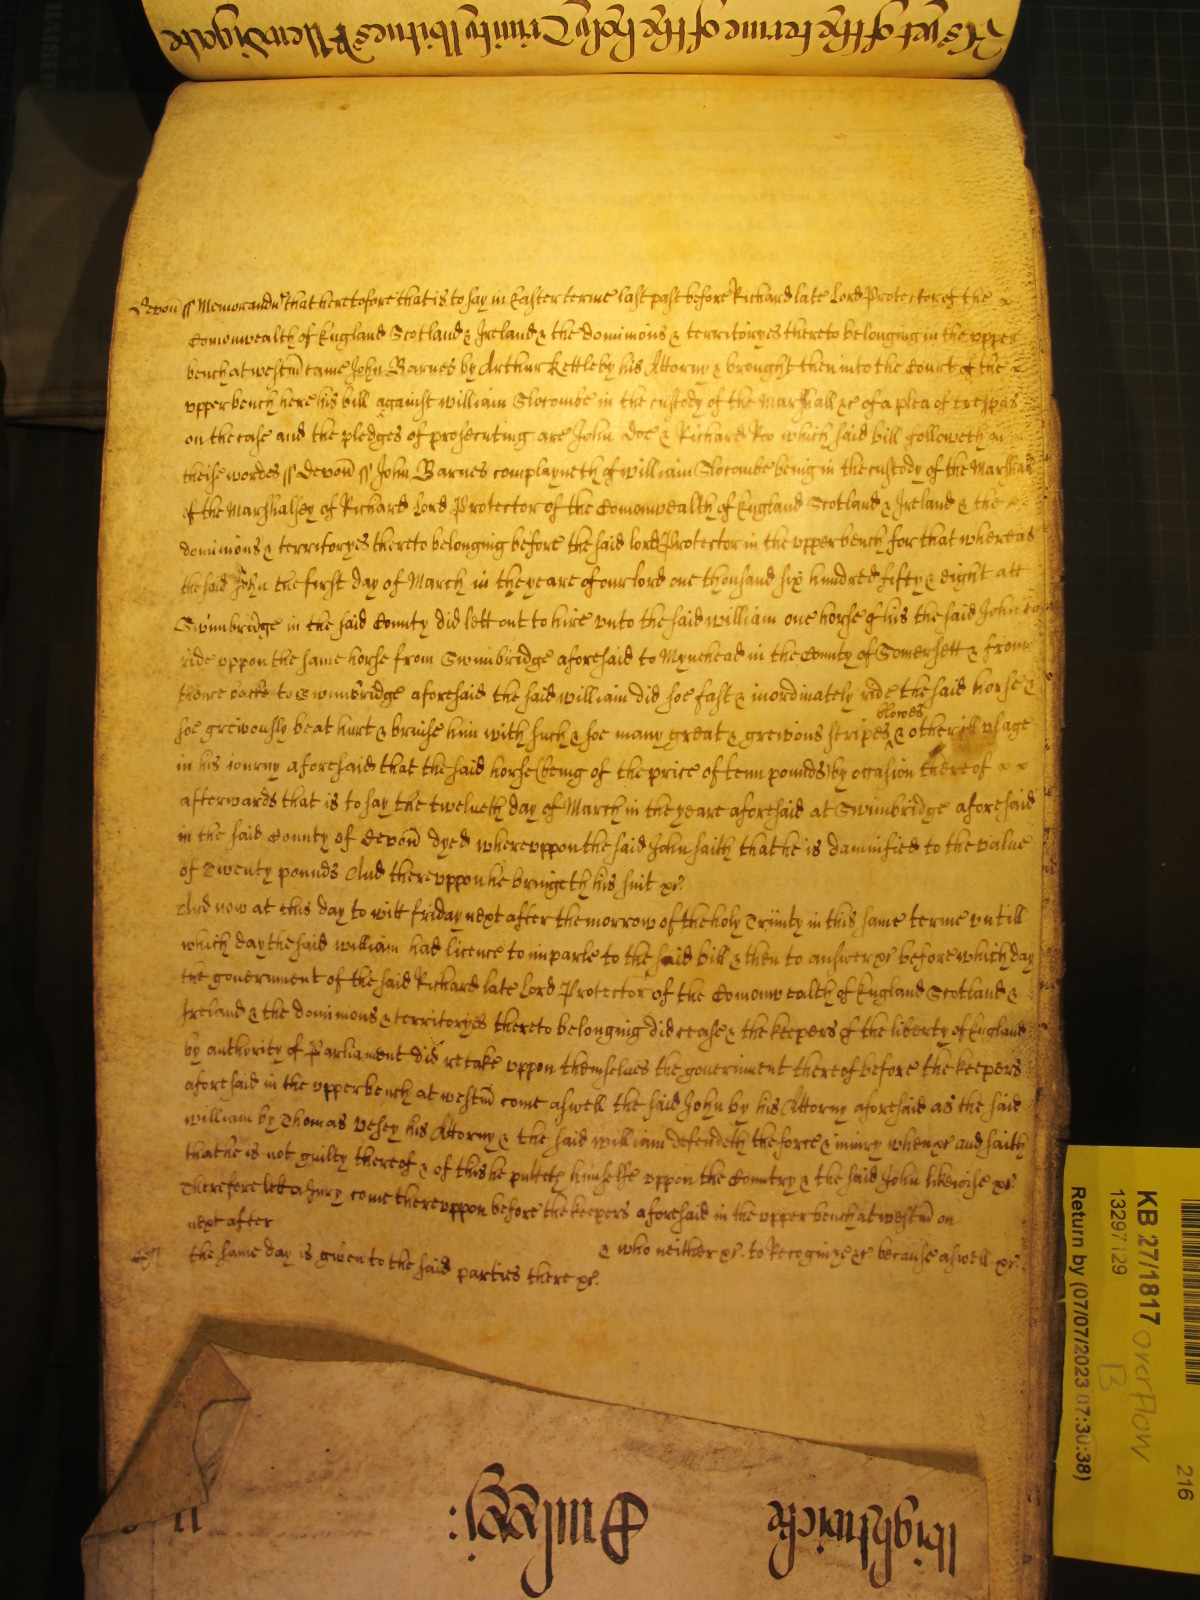 As yet of the terme of the holy Trinity Witnes R Newdigate
Devon ss Memorandu that heretofore that is to say in Easter terme last past before Richard late Lord Protector of the
Comonwealth of England Scotland & Ireland & the dominions & territoryes thereto belonging in the vpper
bench at westm came John Barnes by Arthur Kettleby his Attorny & brought then into the Court of the
vpper bench here his bill against william Slocombe in the custody of the Marshall &c of a plea of trespas
on the case and the pledges of prosecuting are John Doe & Richard Roo which said bill followeth in
theise wordes ss Devon ss John Barnes complayneth of william Slocombe being in the custody of the Marshall
of the Marshalsey of Richard Lord Protector of the Comonwealth of England Scotland & Ireland & the
dominions & territoryes thereto belonging before the said lord Protector in the vpper bench for that whereas
the said John the first day of March in the yeare of our lord one thousand six hundred fifty & eight att
Swimbridge in the said County did lett out to hire vnto the said william one horse of his the said John to
ride vppon the same horse from Swimbridge aforesaid to Mynehead in the County of Somersett & from
thence backe to Swimbridge aforesaid the said william did soe fast & inordinately ride the said horse &
soe greivously beat hurt & bruise him with such & soe many great & greivous stripes blowes & other ill vsage
in his iourny aforesaid that the said horse (being of the price of tenn pounds) by occasion thereof
afterwards that is to say the twelueth day of March in the yeare aforesaid at Swimbridge aforesaid
in the said County of Devon dyed wherevppon the said John saith that he is damnified to the value
of Twenty pounds And therevppon he bringeth his suit &c.
And now at this day to witt friday next after the morrow of the holy Trinity in this same terme vntill
which day the said william had licence to imparle to the said bill & then to answer &c before which day
the goverment of the said Richard late Lord Protector of the Comonwealth of England Scotland &
Ireland & the dominions & territoryes thereto belonging did cease & the keepers of the liberty of England
by authority of Parliament did retake vppon themselues the goverment thereof before the keepers
aforesaid in the vpper bench at westm come aswell the said John by his Attorny aforesaid as the said
william by Thomas Vesey his Attorny & the said william defendeth the force & iniury when &c and saith
that he is not guilty thereof & of this he putteth himselfe vppon the Country & the said John likewise &c.
Therefore let a Jury come therevppon before the keepers aforesaid in the vpper bench at westm on
next after & who neither &c. to Recognize &c because aswell &c.
the same day is given to the said parties there &c.
KB 27/1817
13297129
Return by (07/07/2023 07:30:38)
overflow
B
216